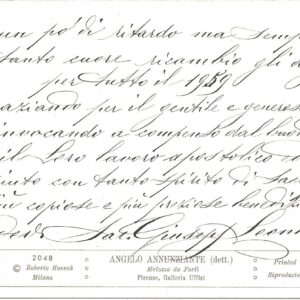 un pó di ritardo ma semp
tanto cuore ricambio gli a
per tutto il 1959
aziando per il gentile e generos
invocando a compenso dal buo
il Loro lavoro apostolico
iuto con tanto spirito di sac
più copiose e più preziose benedizi
Sac. Giuseppe Leona
2048
© Roberto Hoesch
Milano
ANGELO ANNUNZIANTE (dett.)
Melozzo da Forlì
Firenze, Galleria Uffizi
Printed
Riproduzio